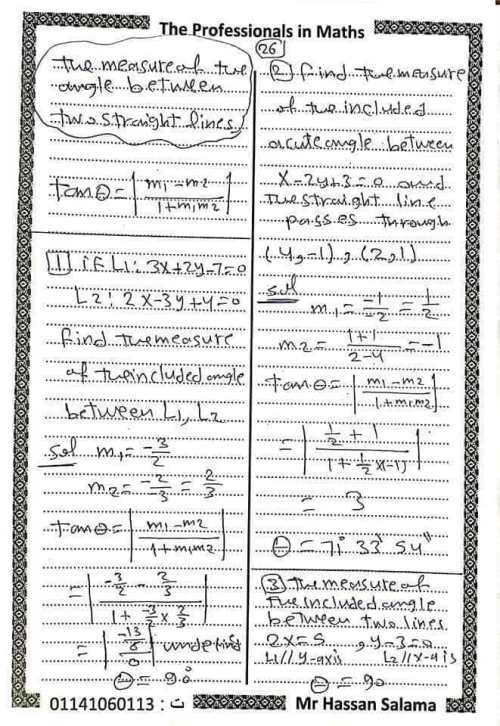 The Professionals in Maths
26
the measure of the
angle between
two straight lines
tanθ = | m1 - m2 / 1 + m1m2 |
1 if L1: 3x+2y-7=0
L2: 2x-3y+4=0
find the measure
of the included angle
between L1, L2
Sol m1 = -3/2
m2 = -2/-3 = 2/3
tanθ = | m1 - m2 / 1 + m1m2 |
= | -3/2 - 2/3 / 1 + -3/2 × 2/3 |
= | -13/6 / 0 | undefind
θ = 90°
2 find the measure
of the included
acute angle between
x-2y+3=0 and
the straight line
passes through
(4,-1), (2,1)
sol
m1 = -1/-2 = 1/2
m2 = 1+1/2-4 = -1
tanθ = | m1 - m2 / 1 + m1m2 |
= | 1/2 + 1 / 1 + 1/2 ×(-1) |
= 3
θ = 71° 33' 54"
3 the measure of
the included angle
between two lines
2x=5, y-3=0
L1//y-axis L2//x-axis
θ = 90
01141060113 : ت
Mr Hassan Salama